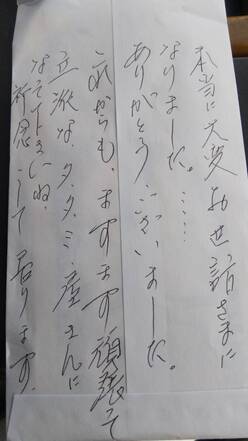 本当に大変お世話さまに
なりました。……
ありがとうございました。
これからも、ますます頑張って
立派な、タタミ屋さんに
なて下さいね。
祈念して居ります。